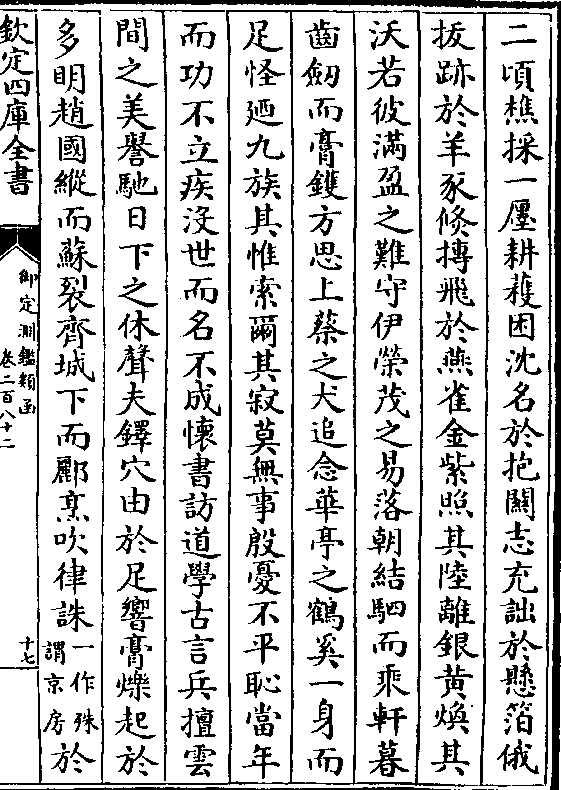 二頃樵採一廛耕穫困沈名於抱關志充詘於懸箔俄
抜跡於羊豕倐摶飛於燕雀金紫照其陸離銀黄煥其
沃若彼滿盈之難守伊榮茂之易落朝結駟而乘軒暮
齒劔而膏鑊方思上蔡之犬追念華亭之鶴奚一身而
足怪廼九族其惟索爾其寂莫無事殷憂不平恥當年
而功不立疾沒世而名不成懷書訪道學古言兵擅雲
間之美譽馳日下之休聲夫鐸穴由於足響膏爍起於
多明趙國縱而蘇裂齊城下而酈烹吹律誅一作殊謂京房於
欽定四庫全書
御定淵鑑類函
卷二百八十二
十七